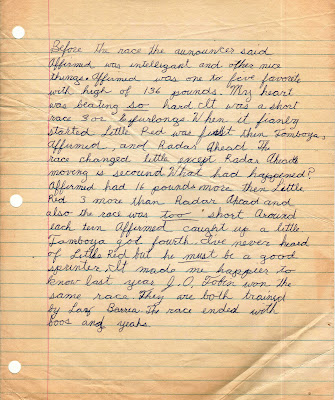 Before the race the aunouncer said
Affirmed was intelligant and other nice
things. Affirmed was one to five favorete
with high of 136 pounds. My heart
was beating so hard. It was a short
race 3 or furlongs. When it fianly
started Little Red was first then Tamboya,
Affirmed, and Radar Ahead. The
race changed little except Radar Ahead
moving is secound. What had happened?
Affirmed had 16 pounds more then Little
Red 3 more than Radar Ahead and
also the race was too short. Around
each turn Affirmed caught up a little
Tamboya got fourth. I've never heard
of Little Red but he must be a good
sprinter. It made me happier to
know last year J.O. Tobin won the
same race. They are both trained
by Laz Barrea. The race ended with
boos and yeahs.